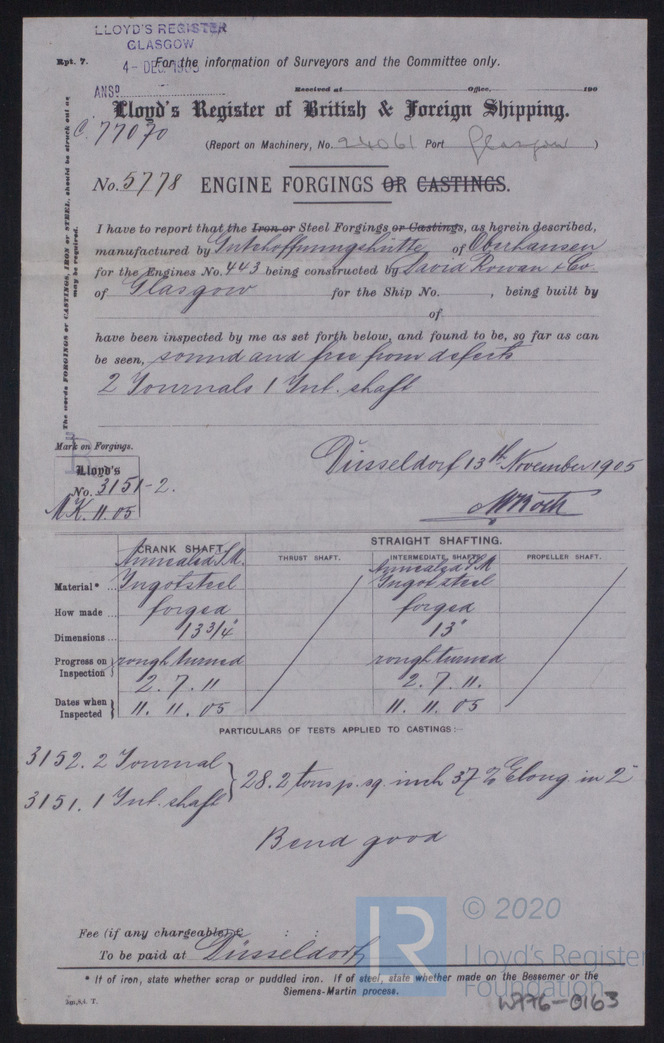 LLOYD'S REGISTER
GLASGOW
4 - DEC. 1905
Rpt. 7. For the information of Surveyors and the Committee only.
ANSD Received at Office, 190
Lloyd's Register of British & Foreign Shipping.
C. 77070
(Report on Machinery, No. 24061 Port Glasgow )
No. 5778 ENGINE FORGINGS OR CASTINGS.
The words FORGINGS or CASTINGS, IRON or STEEL, should be struck out as
may be required.
I have to report that the Iron or Steel Forgings or Castings, as herein described,
manufactured by Gutehoffnungshütte of Oberhausen
for the Engines No. 443 being constructed by David Rowan & Co.
of Glasgow for the Ship No. , being built by
of
have been inspected by me as set forth below, and found to be, so far as can
be seen, sound and free from defects
2 Journals 1 Int. shaft
Mark on Forgings.
LR
Lloyd's
No. 3151-2.
M.K. 11.05
Düsseldorf 13th November 1905
CRANK SHAFT. THRUST SHAFT. STRAIGHT SHAFTING. INTERMEDIATE SHAFT. PROPELLER SHAFT.
Annealed S.M. Annealed S.M.
Material* Ingotsteel Ingot steel
How made ... forged forged
Dimensions ... 13 3/4" 13"
Progress on Inspection rough turned rough turned
2. 7. 11 2. 7. 11.
Dates when Inspected 11. 11. 05 11. 11. 05
PARTICULARS OF TESTS APPLIED TO CASTINGS:—
3152. 2 Journal
3151. 1 Int. shaft } 28.2 tons p. sq. inch 37 % Elong. in 2"
Bend good
Fee (if any chargeable) £ : :
To be paid at Düsseldorf
* If of iron, state whether scrap or puddled iron. If of steel, state whether made on the Bessemer or the
Siemens-Martin process.
LR
© 2020
Lloyd's Register
Foundation
W976-0163